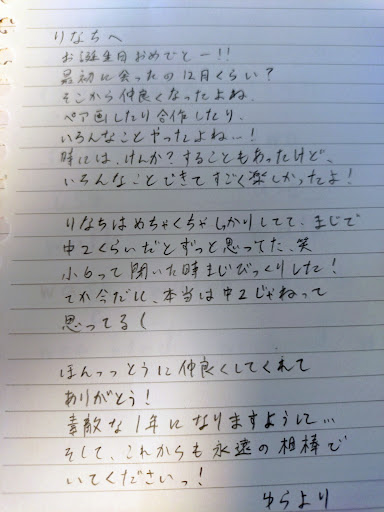 りなちへ
お誕生日おめでとー!!
最初に会ったの12月くらい?
そこから仲良くなったよね、
ペア画したり合作したり、
いろんなことやったよね…!
時には、けんか?することもあったけど、
いろんなことできてすごく楽しかったよ!
りなちはめちゃくちゃしっかりしてて、まじで
中2くらいだとずっと思ってた、笑
小6って聞いた時まじびっくりした!
てか今だに、本当は中2じゃねって
思ってる(
ほんっっとうに仲良くしてくれて
ありがとう!
素敵な1年になりますように…
そして、これからも永遠の相棒で
いてくださいっ!
ゆらより